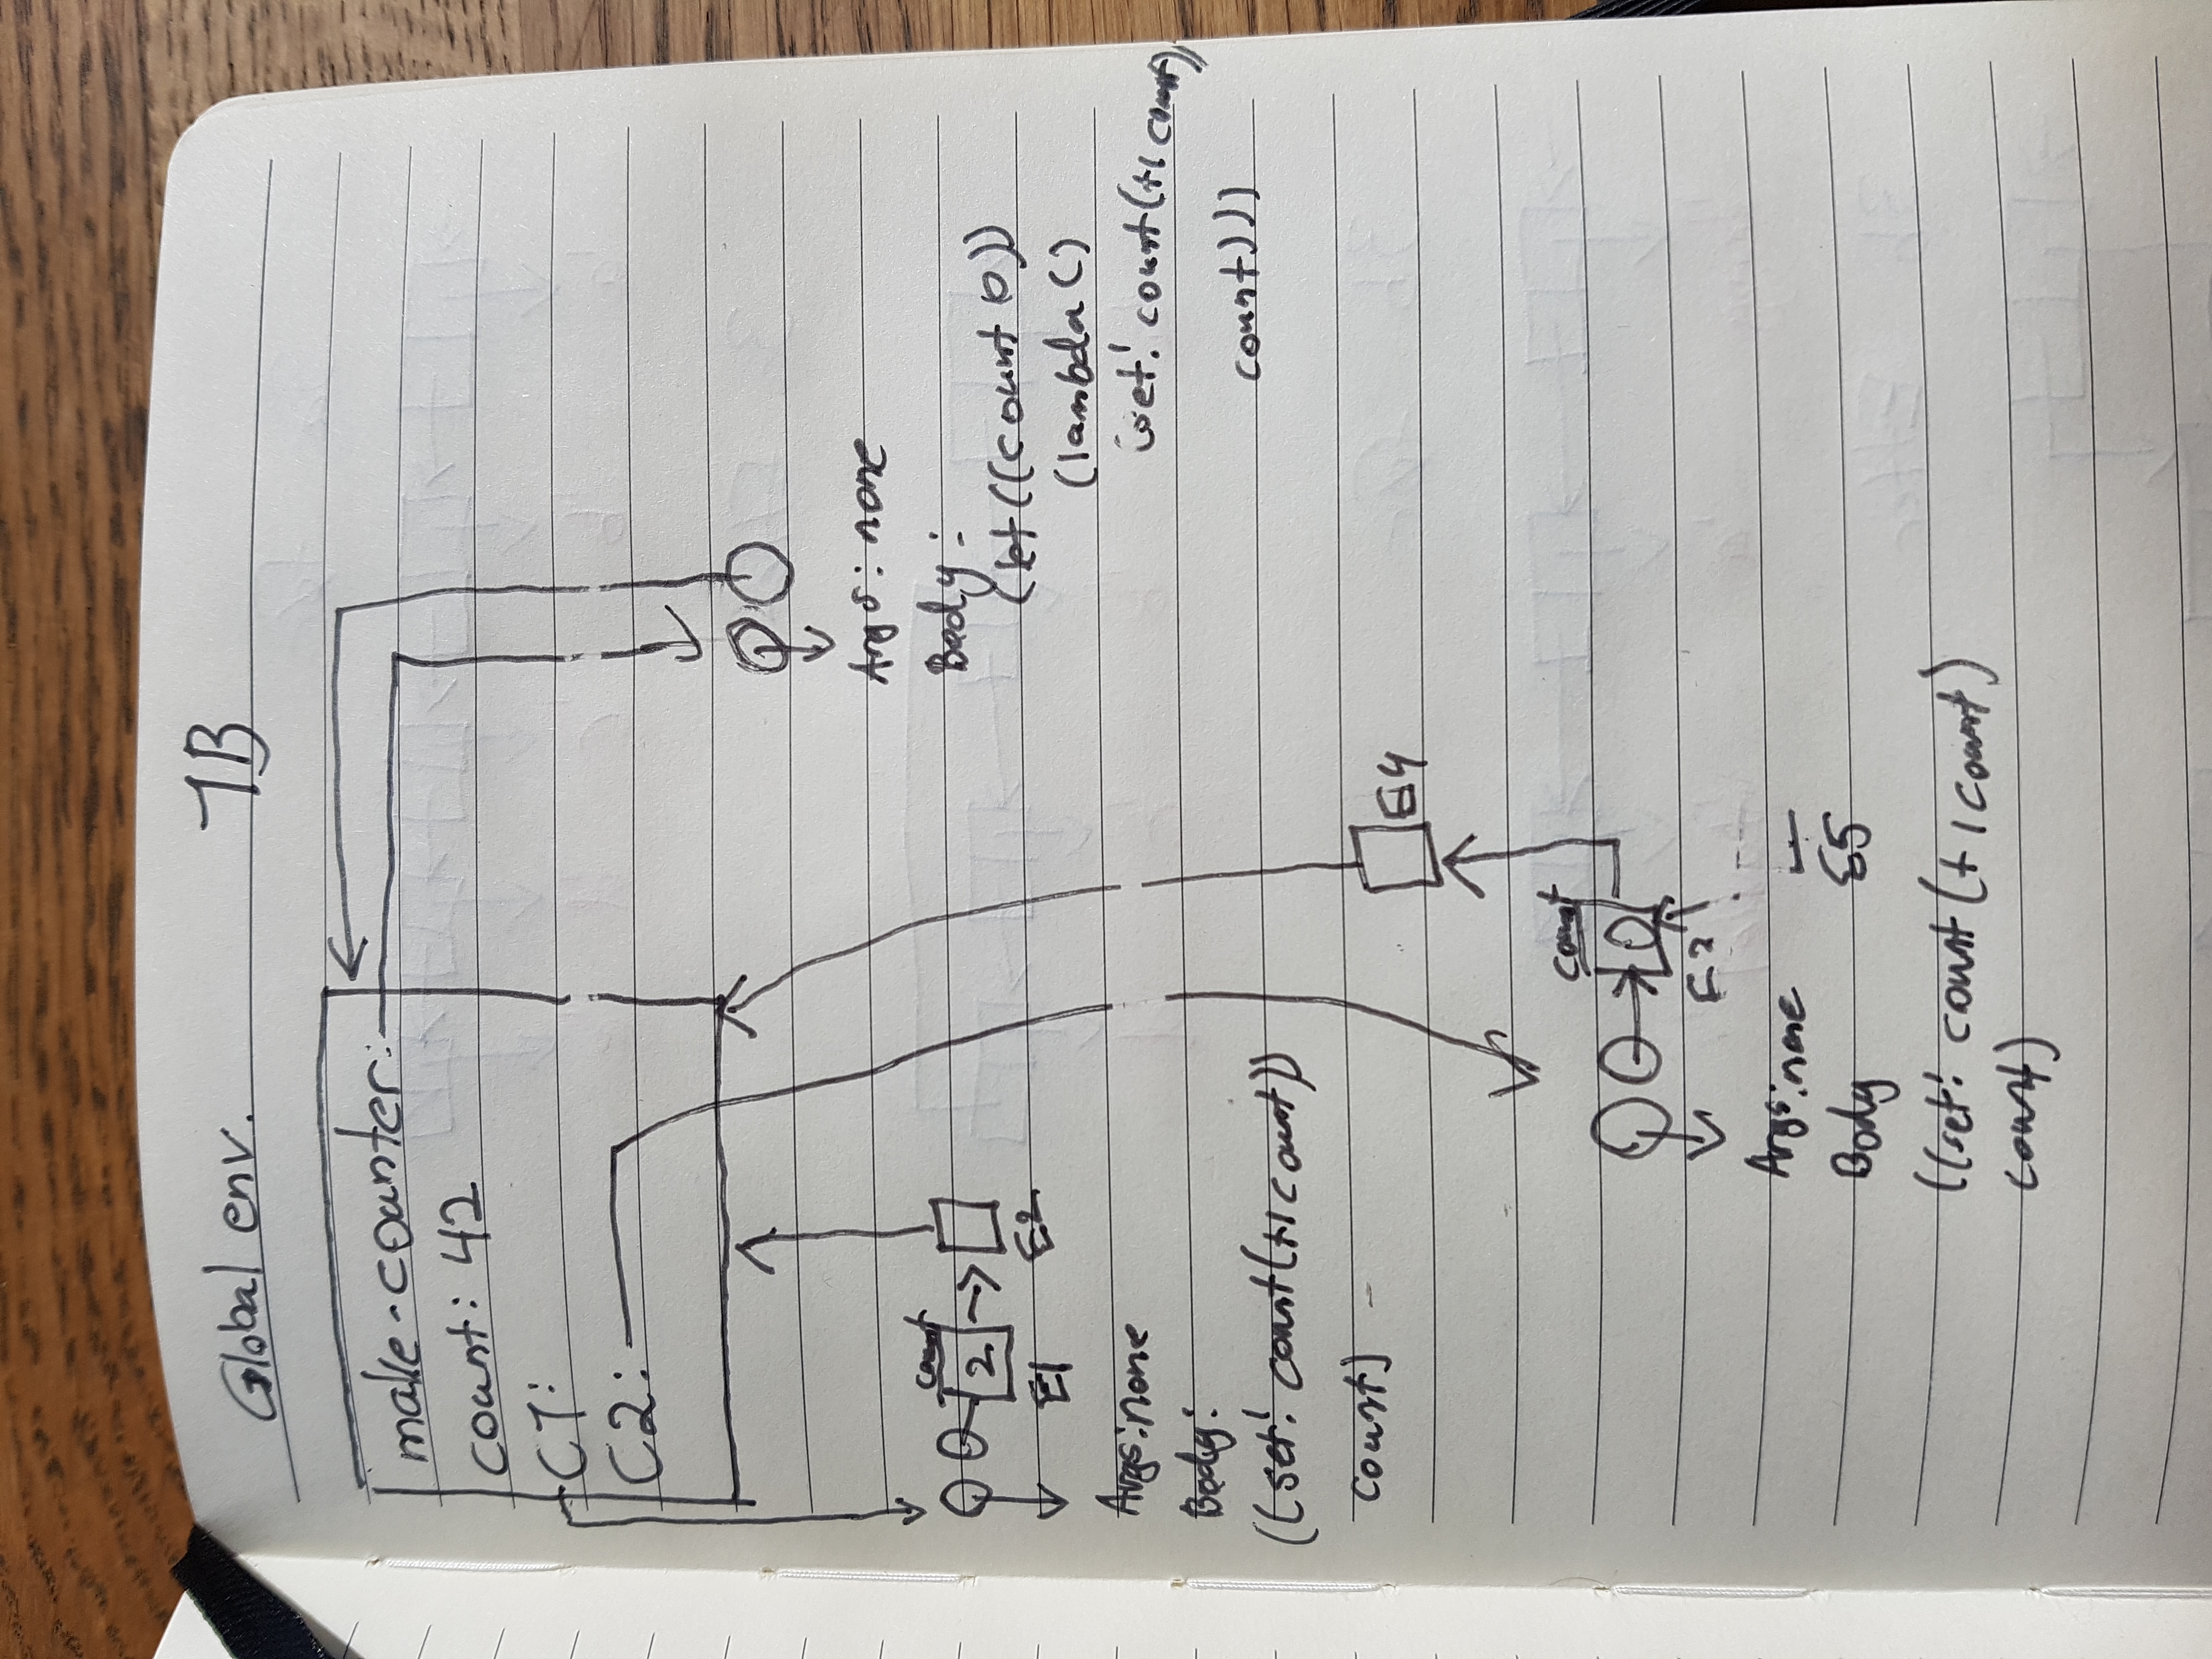 Global env.
1B
make-counter:
count: 42
C1:
C2:
Args: none
Body:
(let ((count 0))
(lambda ()
(set! count (+1 count))
count)))
count
2
E1
E2
Args: none
Body:
((set! count (+1 count))
count)
E4
count
0
E3
Args: none
E5
Body
((set! count (+ 1 count)
count)